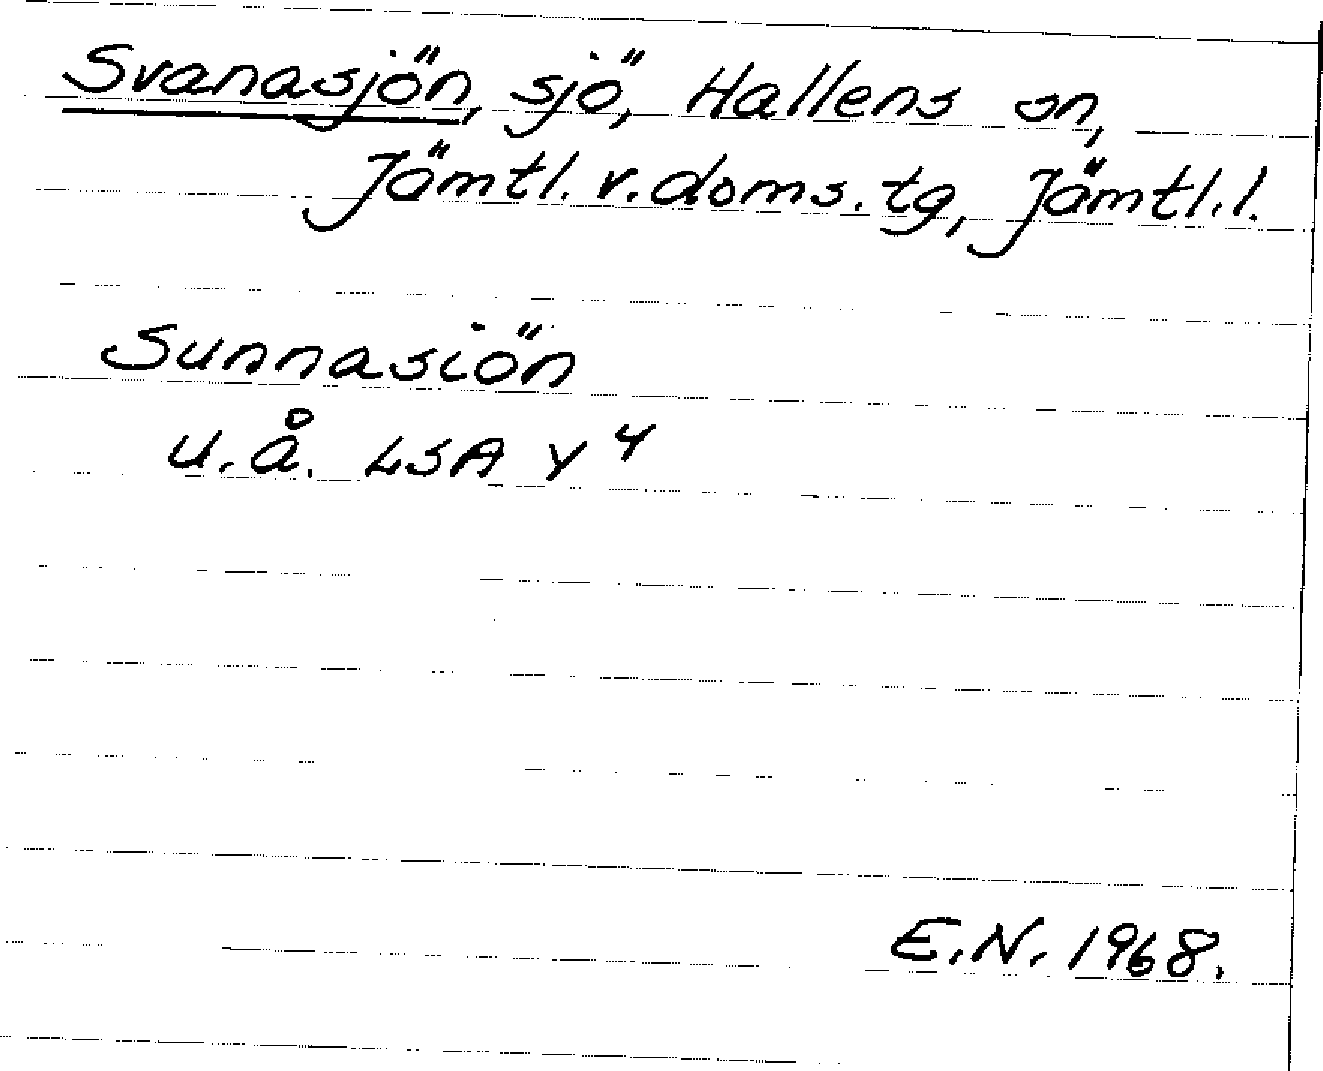 Svanasjön, sjö, Hallens sn,
Jämtl. v. doms. tg, Jämtl. l.
Sunnasiön
u. å. LSA Y 4
E. N. 1968.